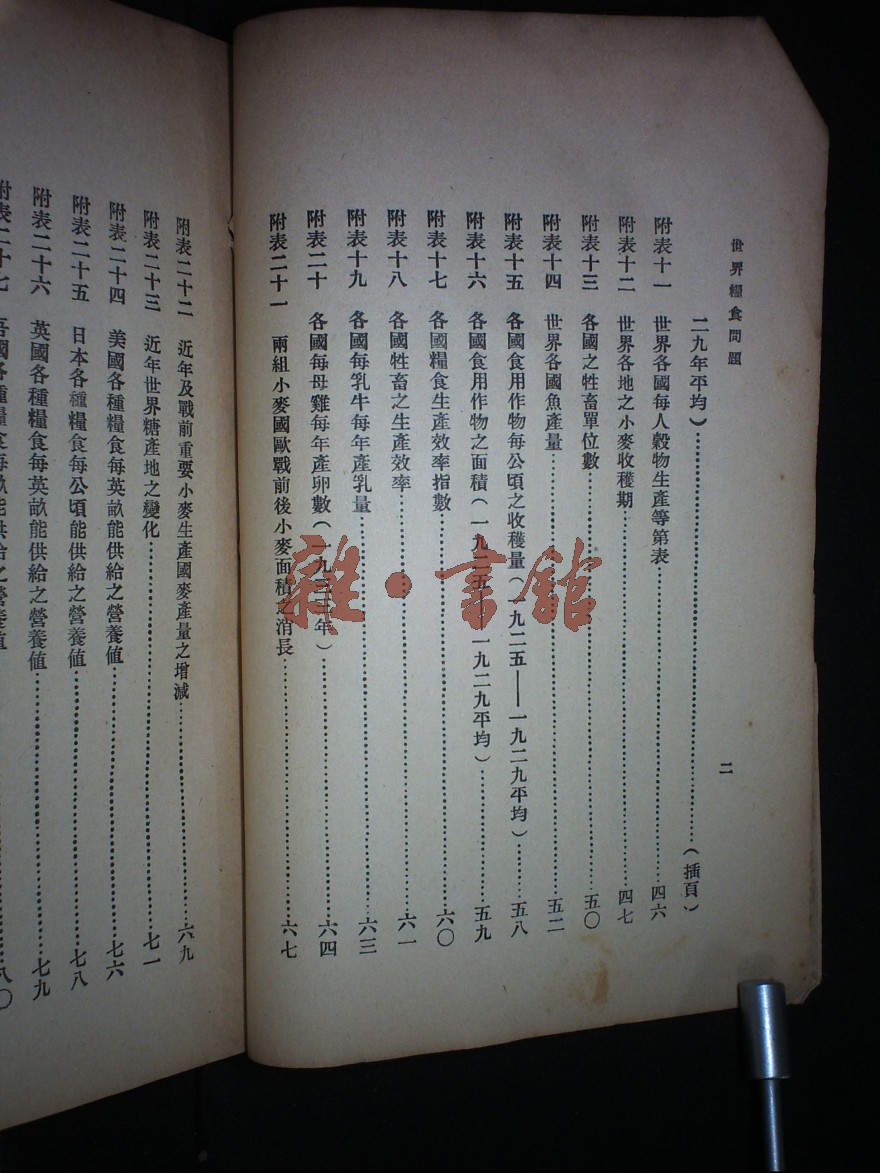 世界糧食問題
二
二九年平均)……(插頁)
附表十一 世界各國每人穀物生產等第表……四六
附表十二 世界各地之小麥收穫期……四七
附表十三 各國之牲畜單位數……五〇
附表十四 世界各國魚產量……五二
附表十五 各國食用作物每公頃之收穫量(一九二五——一九二九平均)……五八
附表十六 各國食用作物之面積(一九二五——一九二九平均)……五九
附表十七 各國糧食生產效率指數……六〇
附表十八 各國牲畜之生產效率……六一
附表十九 各國每乳牛每年產乳量……六三
附表二十 各國每母雞每年產卵數(一九三二年)……六四
附表二十一 兩組小麥國歐戰前後小麥面積之消長……六七
附表二十二 近年及戰前重要小麥生產國麥產量之增減……六九
附表二十三 近年世界糖產地之變化……七一
附表二十四 美國各種糧食每英畝能供給之營養値……七六
附表二十五 日本各種糧食每公頃能供給之營養値……七八
附表二十六 英國各種糧食每英畝能供給之營養値……七九
附表二十七 各種糧食每畝能供給之營養値……八〇
雜·書館